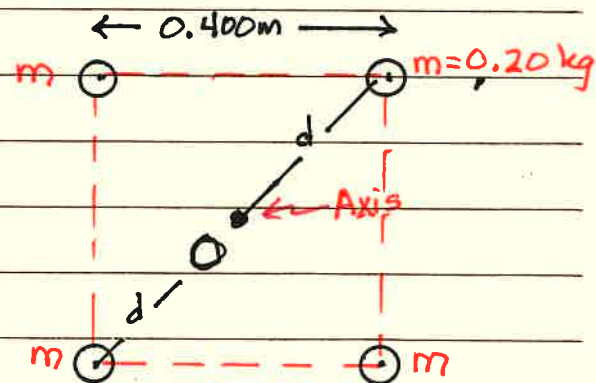 0.400m
m
m=0.20 kg
d
Axis
O
d
m
m